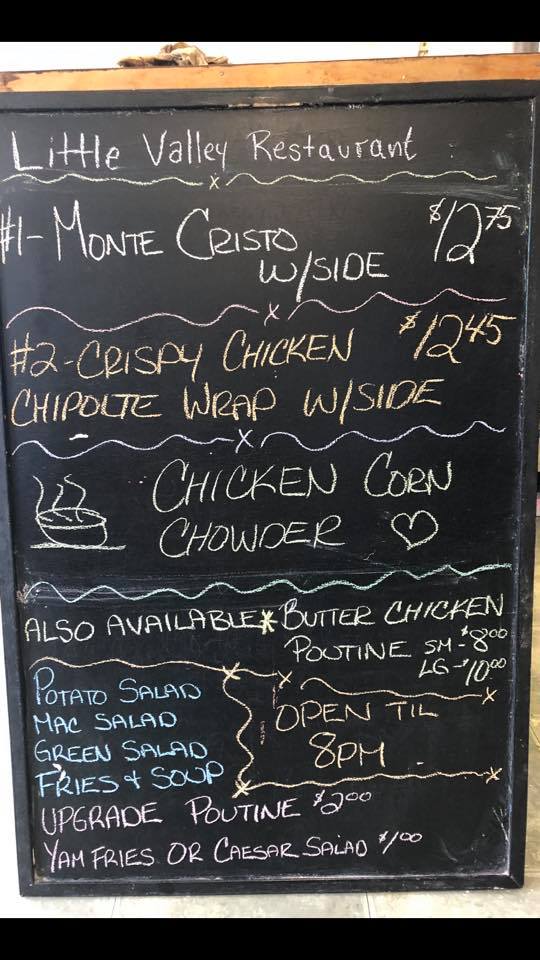 Little Valley Restaurant
#1-Monte Cristo $12.75
w/side
#2-Crispy Chicken $12.45
Chipolte Wrap w/side
Chicken Corn
Chowder ♡
Also Available * Butter Chicken
Poutine sm - $8.00
LG - $10.00
Potato Salad
Mac Salad
Green Salad
Fries + Soup
Open Til
8PM
Upgrade Poutine $2.00
Yam Fries or Caesar Salad $1.00